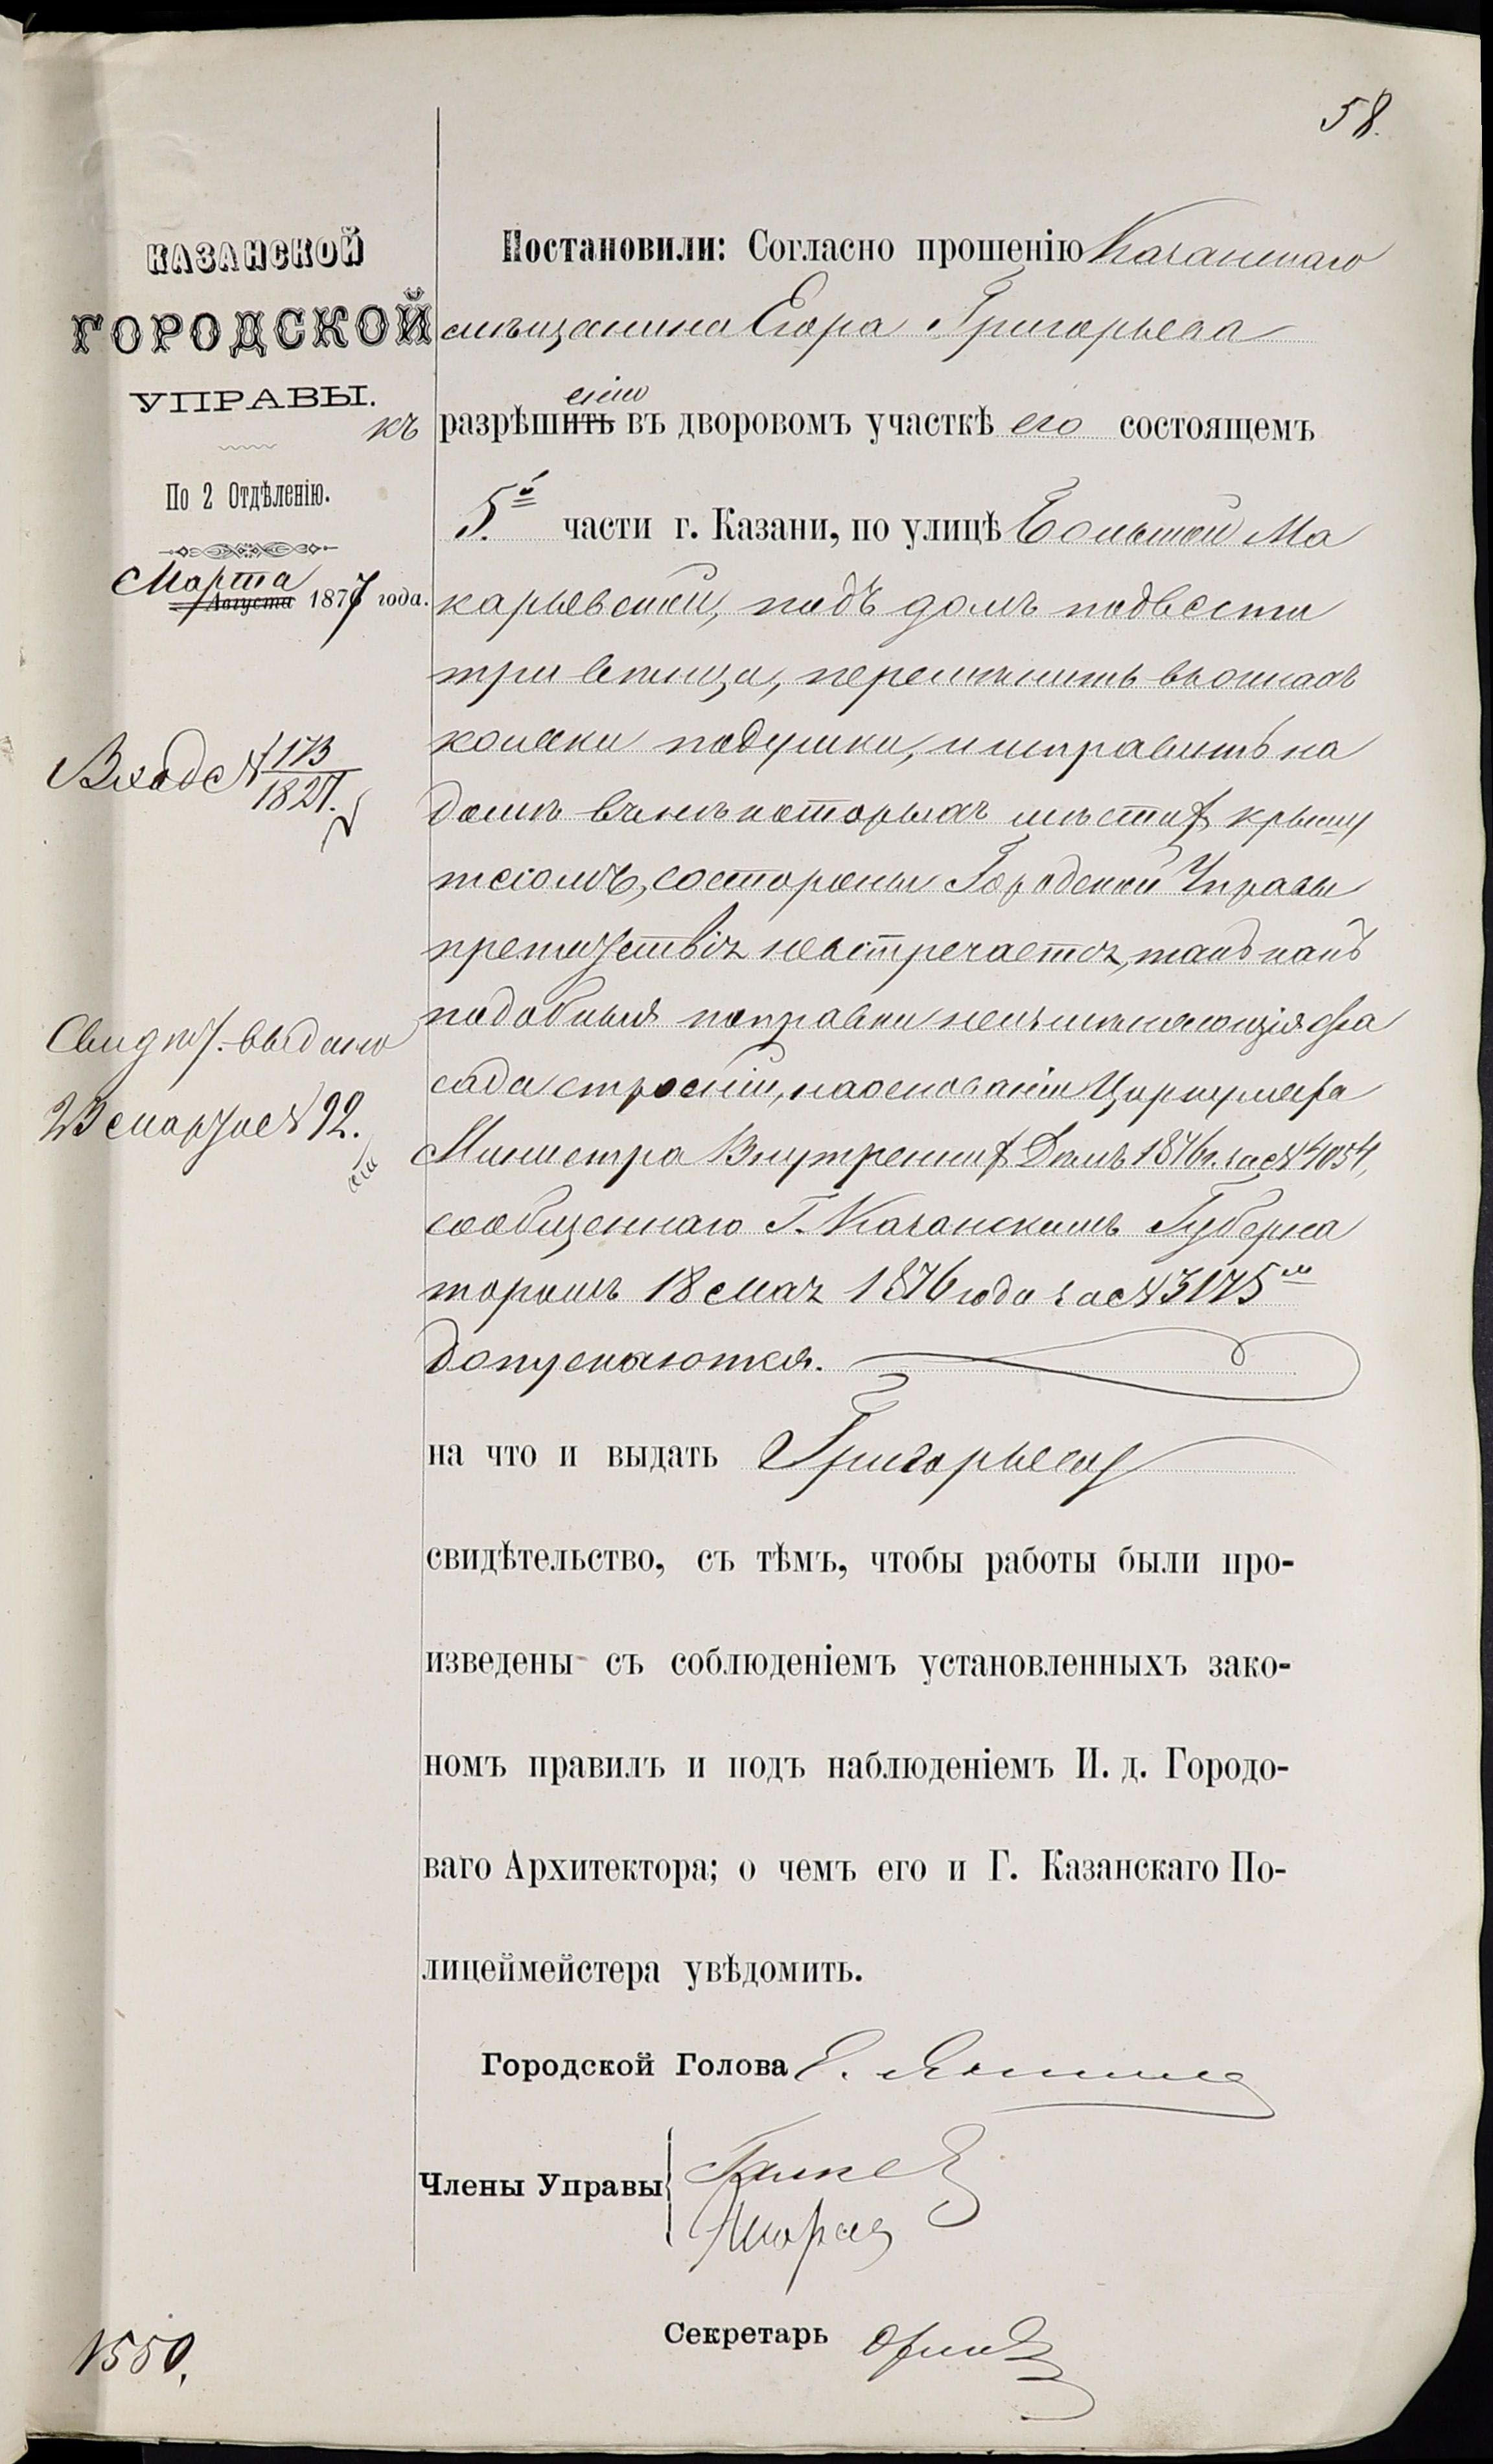 58.
КАЗАНСКОЙ
ГОРОДСКОЙ
УПРАВЫ.
По 2 Отдѣленію.
Марта
Августа 1877 года.
Входс № 173
1827.
Свидѣт. выдано
23 марта № 92.
Постановили: Согласно прошенію Казанскаго
мѣщанина Егора Григорьева
къ разрѣшить енію въ дворовомъ участкѣ его состоящемъ
5.й части г. Казани, по улицѣ Большой Ма
карьевской, подъ домъ подвести
три венца, перемѣнить въ окнахъ
косяки подушки, и исправить на
домѣ въ нѣкоторыхъ мѣстах крышу
тесомъ, со стороны Городской Управы
препятствія не встречается, такъ какъ
подобныя поправки не измѣняющія фа
сада строеній, на основаніи Циркуляра
Министра Внутренних Дѣлъ 1876 г. за № 4054,
сообщеннаго Г. Казанскимъ Губерна
торомъ 18 мая 1876 года за № 3175м
допускаются.
на что и выдать Григорьеву
свидѣтельство, съ тѣмъ, чтобы работы были про-
изведены съ соблюденіемъ установленныхъ зако-
номъ правилъ и подъ наблюденіемъ И. д. Городо-
ваго Архитектора; о чемъ его и Г. Казанскаго По-
лицеймейстера увѣдомить.
Городской Голова
Члены Управы
Секретарь
№ 550.